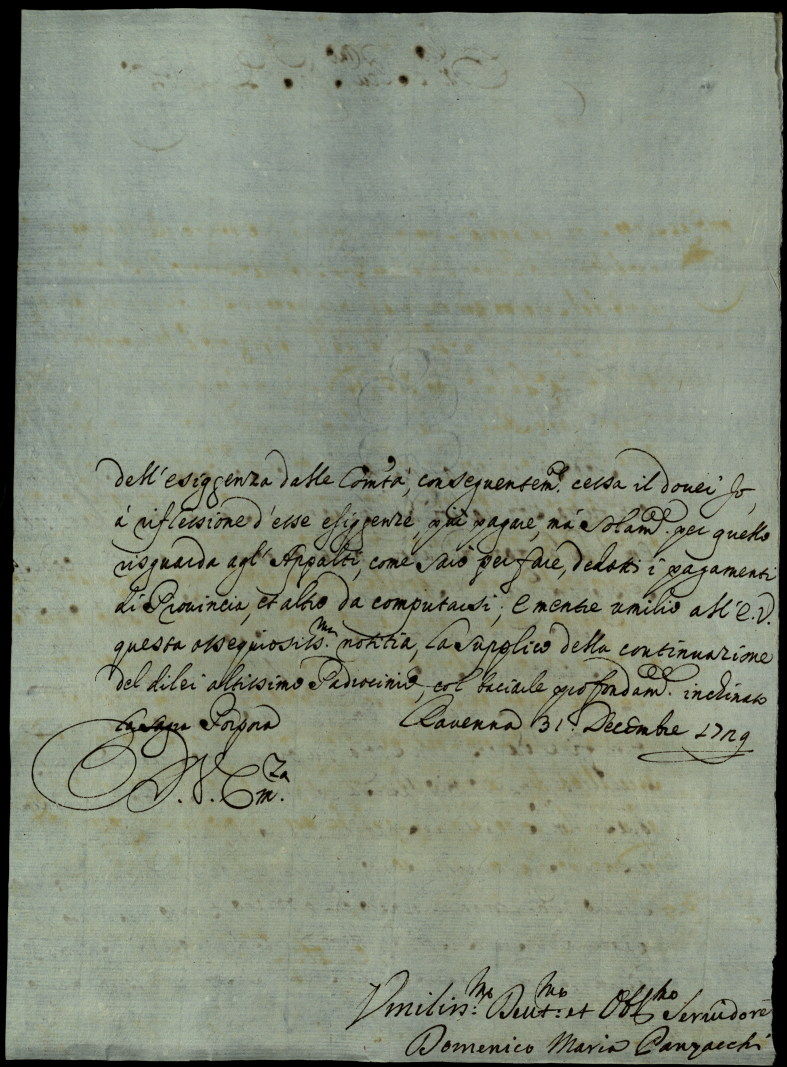 dell'esiggenza dalle Com.tà, conseguentem.te cessa il dover Io,
à riflessione d'esse esiggenze, più pagare, mà solam.te per quello
risguarda agl'Appalti, come sarò per fare, dedotti i pagamenti
di Provincia, et altro da computarsi; e mentre umilio all'E.V.
questa ossequiosiss.ma notitia, la supplico della continuazione
del dilei altissimo Padrocinio, col baciale profondam.te inchinato
la sagra Porpora Ravenna 31. Decembre 1729
D. V. Em.za
Vmiliss.mo Deut.mo et Obl.mo Seruidore
Domenico Maria Panzacchi